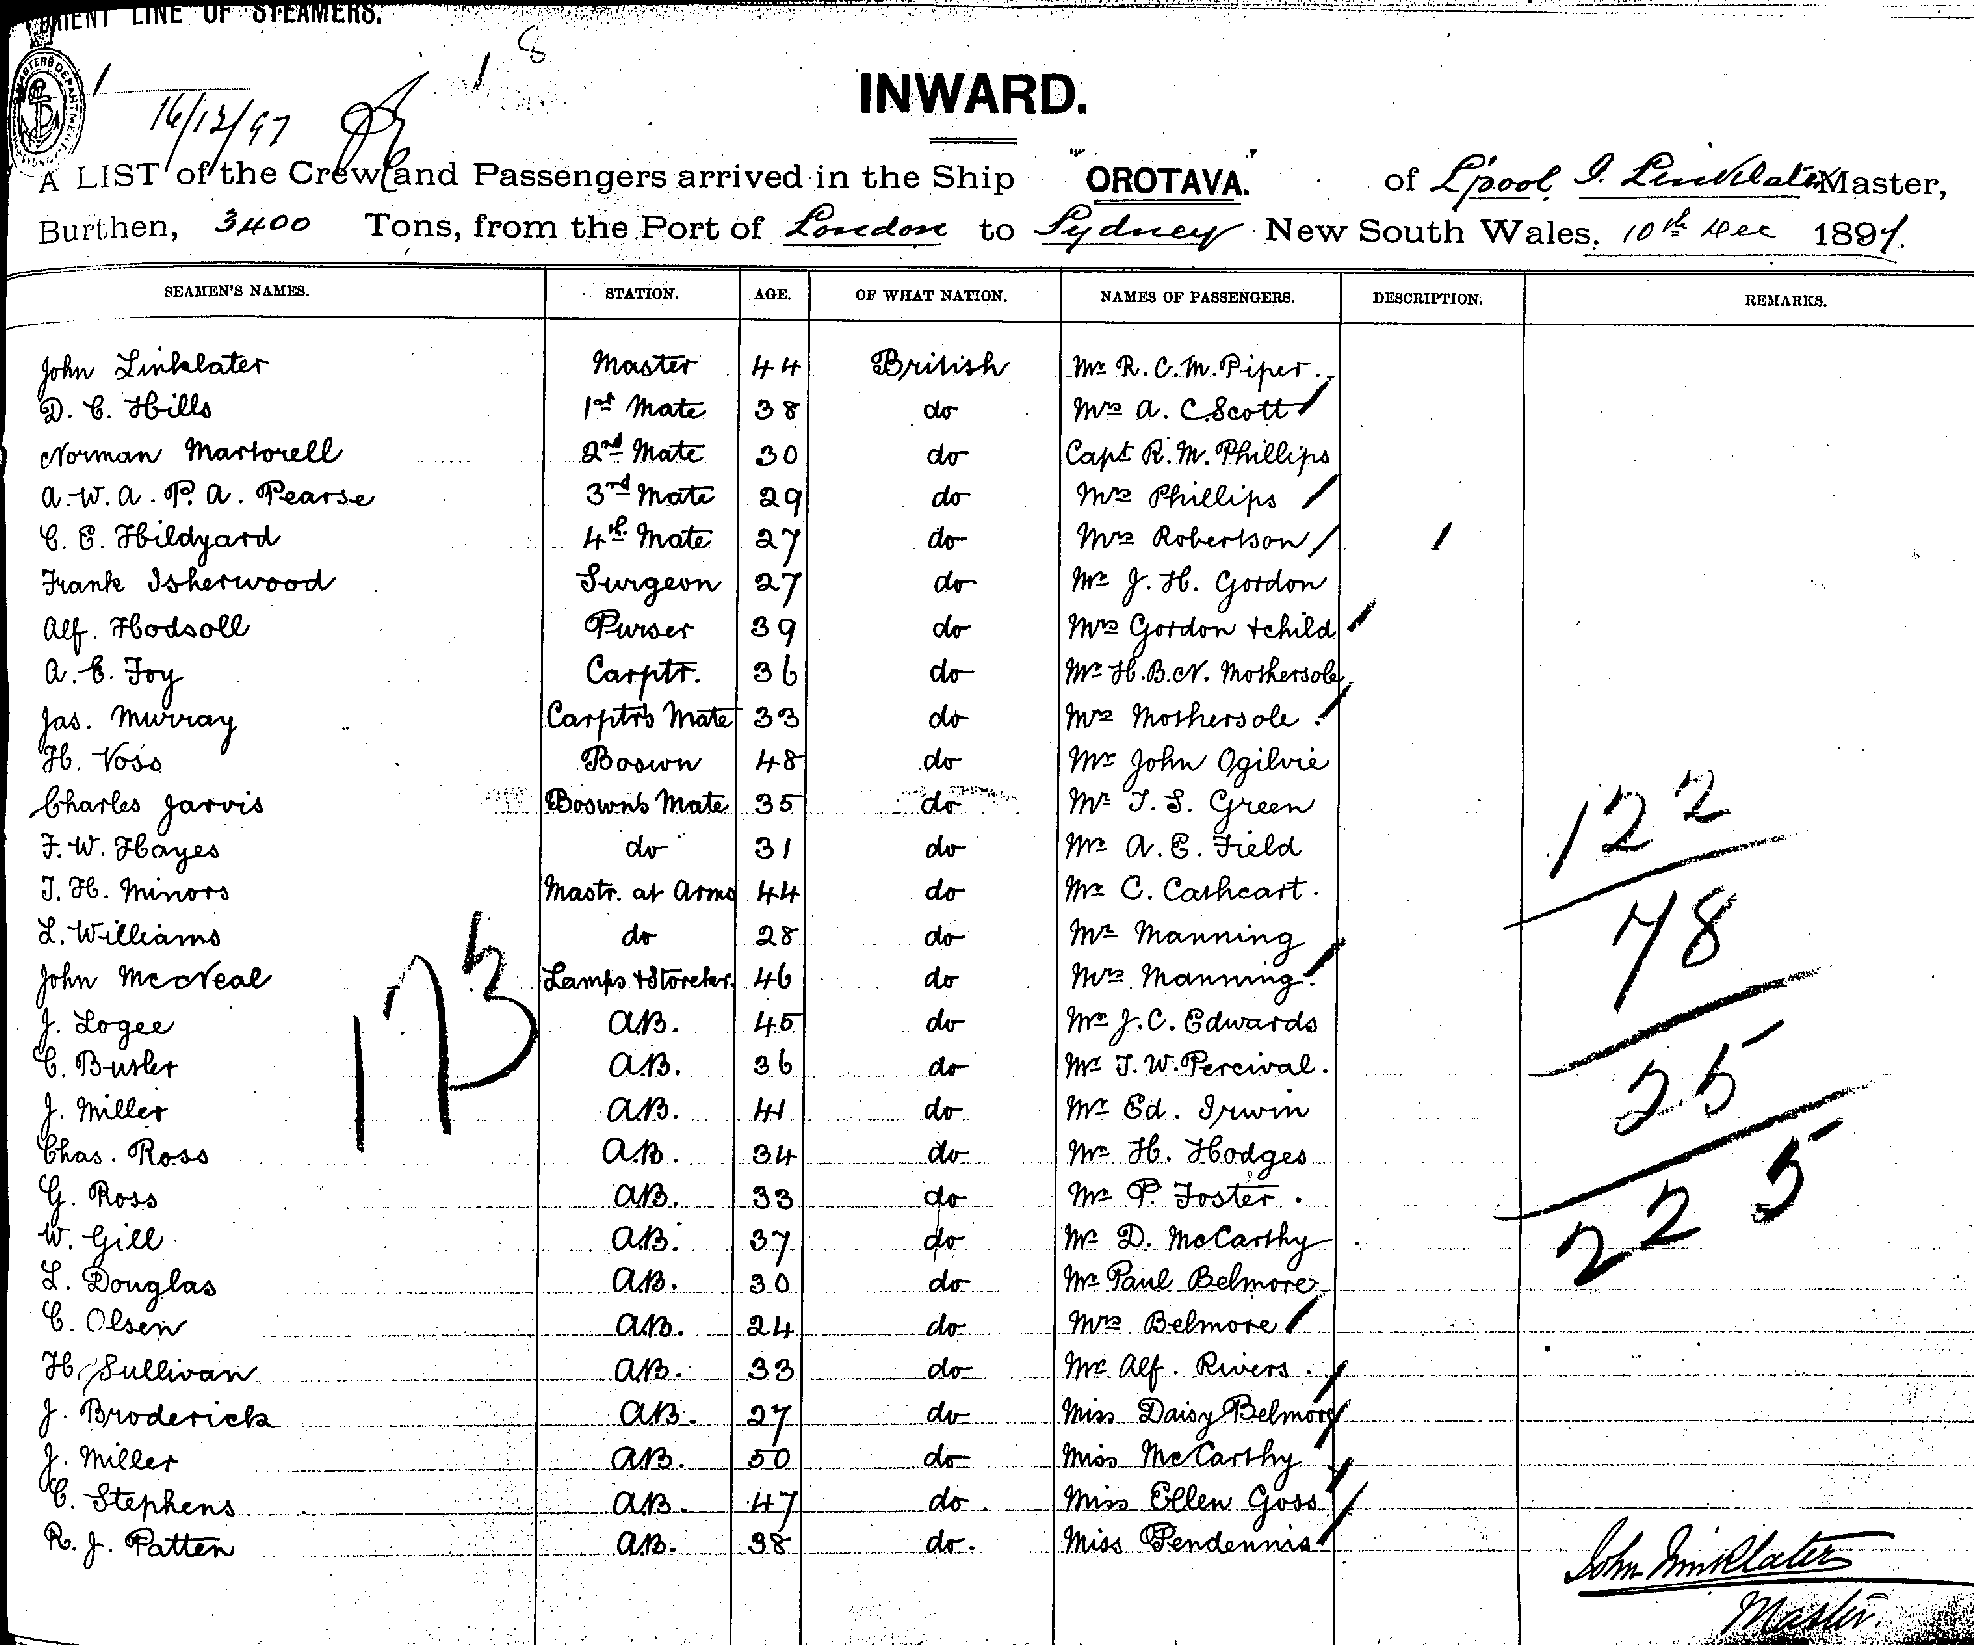 ORIENT LINE OF STEAMERS.
1 8
16/12/97
INWARD.
A LIST of the Crew and Passengers arrived in the Ship "OROTAVA." of L'pool, J. Linklater Master,
Burthen, 3400 Tons, from the Port of London to Sydney New South Wales, 10th Dec 1897.
SEAMEN'S NAMES. STATION. AGE. OF WHAT NATION. NAMES OF PASSENGERS. DESCRIPTION. REMARKS.
John Linklater Master 44 British Mr R. C. M. Piper.
D. C. Hills 1st Mate 38 do Mrs A. C. Scott
Norman Martorell 2nd Mate 30 do Capt R. M. Phillips
A. W. A. P. A. Pearse 3rd Mate 29 do Mrs Phillips
C. E. Hildyard 4th Mate 27 do Mrs Robertson
Frank Isherwood Surgeon 27 do Mr J. H. Gordon
Alf. Hodsoll Purser 39 do Mrs Gordon & child
A. E. Foy Carptr. 36 do Mr H. B. N. Mothersole
Jas. Murray Carptr's Mate 33 do Mrs Mothersole
H. Voss Boswn 48 do Mr John Ogilvie
Charles Jarvis Boswn's Mate 35 do Mr T. S. Green
F. W. Hayes do 31 do Mr A. E. Field
T. H. Minors Mastr. at Arms 44 do Mr C. Cathcart.
L. Williams do 28 do Mr Manning
John McNeal Lamps & Storekr. 46 do Mrs Manning
J. Logee AB. 45 do Mr J. C. Edwards
C. Butler AB. 36 do Mr T. W. Percival.
J. Miller AB. 41 do Mr Ed. Irwin
Chas. Ross AB. 34 do Mr H. Hodges
G. Ross AB. 33 do Mr P. Foster.
W. Gill AB. 37 do Mr D. McCarthy
L. Douglas AB. 30 do Mr Paul Belmore
C. Olsen AB. 24 do Mrs Belmore
H. Sullivan AB. 33 do Mr Alf. Rivers.
J. Broderick AB. 27 do Miss Daisy Belmore
J. Miller AB. 50 do Miss McCarthy
C. Stephens AB. 47 do. Miss Ellen Goss
R. J. Patten AB. 38 do. Miss Pendennis
173
122
78
25
225
John Linklater
Master.